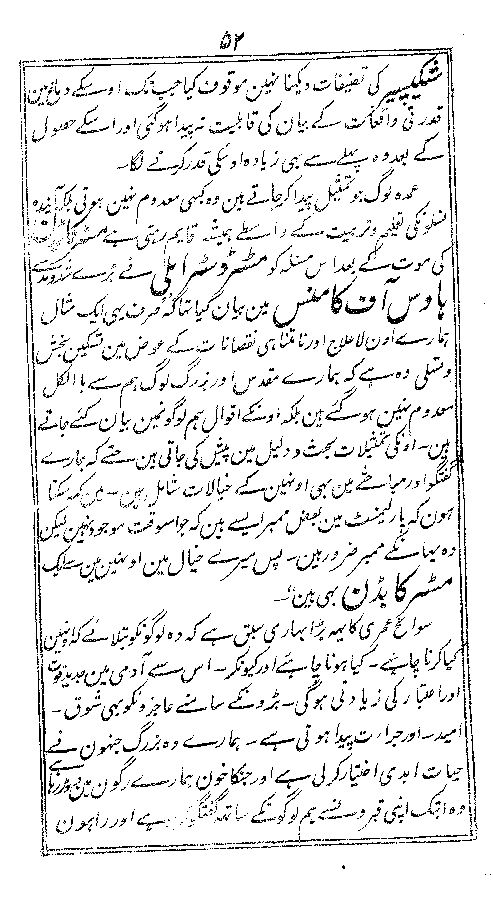 ۵۲
شکیسپیر کی تصنیفات دیکھنا نہین موقوف کیا جب تک اوسکے دماغ مین
قدرتی واقعات کے بیان کی قابلیت نہ پیدا ہوگئی اور اسکے حصول
کے بعد وہ پہلے سے بھی زیادہ اوسکی قدر کرنے لگا۔
عمدہ لوگ جو تمثیل پیدا کر جاتے ہین وہ کبھی معدوم نہین ہوتی بلکہ آیندہ
نسلونکی تعلیم و تربیت کے واسطے ہمیشہ قایم رہتی ہے مسٹر کابڈن
کی موت کے بعد اس مسئلہ کو مسٹر ڈسرائلی نے بڑے شد و مد سے
ہاوس آف کامنس مین بیان کیا تھا کہ صرف یہی ایک مثال
ہمارے اون لا علاج اور نامتناہی نقصانات کے عوض مین تسکین بخش
و تسلی دہ ہے کہ ہمارے مقدس اور بزرگ لوگ ہم سے بالکل
معدوم نہین ہو گئے ہین بلکہ اونکے اقوال ہم لوگونمین بیان کئے جاتے
ہین۔ اونکی تمثیلات بحث و دلیل مین پیش کی جاتی ہین حتے کہ ہمارے
گفتگو اور مباحثے مین بھی اونہین کے خیالات شامل ہین۔ مین کہہ سکتا
ہون کہ پارلیمنٹ مین بعض ممبر ایسے ہین کہ جو اسوقت موجود نہین لیکن
وہ یہانکے ممبر ضرور ہین۔ پس میرے خیال مین اونہین مین سے ایک
مسٹر کابڈن بھی ہین"۔
سوانح عمری کا یہہ بڑا بھاری سبق ہے کہ وہ لوگونکو بتلائے کہ اونہین
کیا کرنا چاہیے۔ کیا ہونا چاہیے اور کیونکر۔ اس سے آدمی مین جدید قوت
اور اعتبار کی زیادتی ہوگی۔ بڑونکے سامنے عاجزونکو بھی شوق۔
امید۔ اور جرات پیدا ہوتی ہے۔ ہمارے وہ بزرگ جنہون نے
حیات ابدی اختیار کر لی ہے اور جنکا خون ہمارے رگون مین
وہ ابتک اپنی قبرونسے ہم لوگونکے ساتھ گفتگو اور راہون